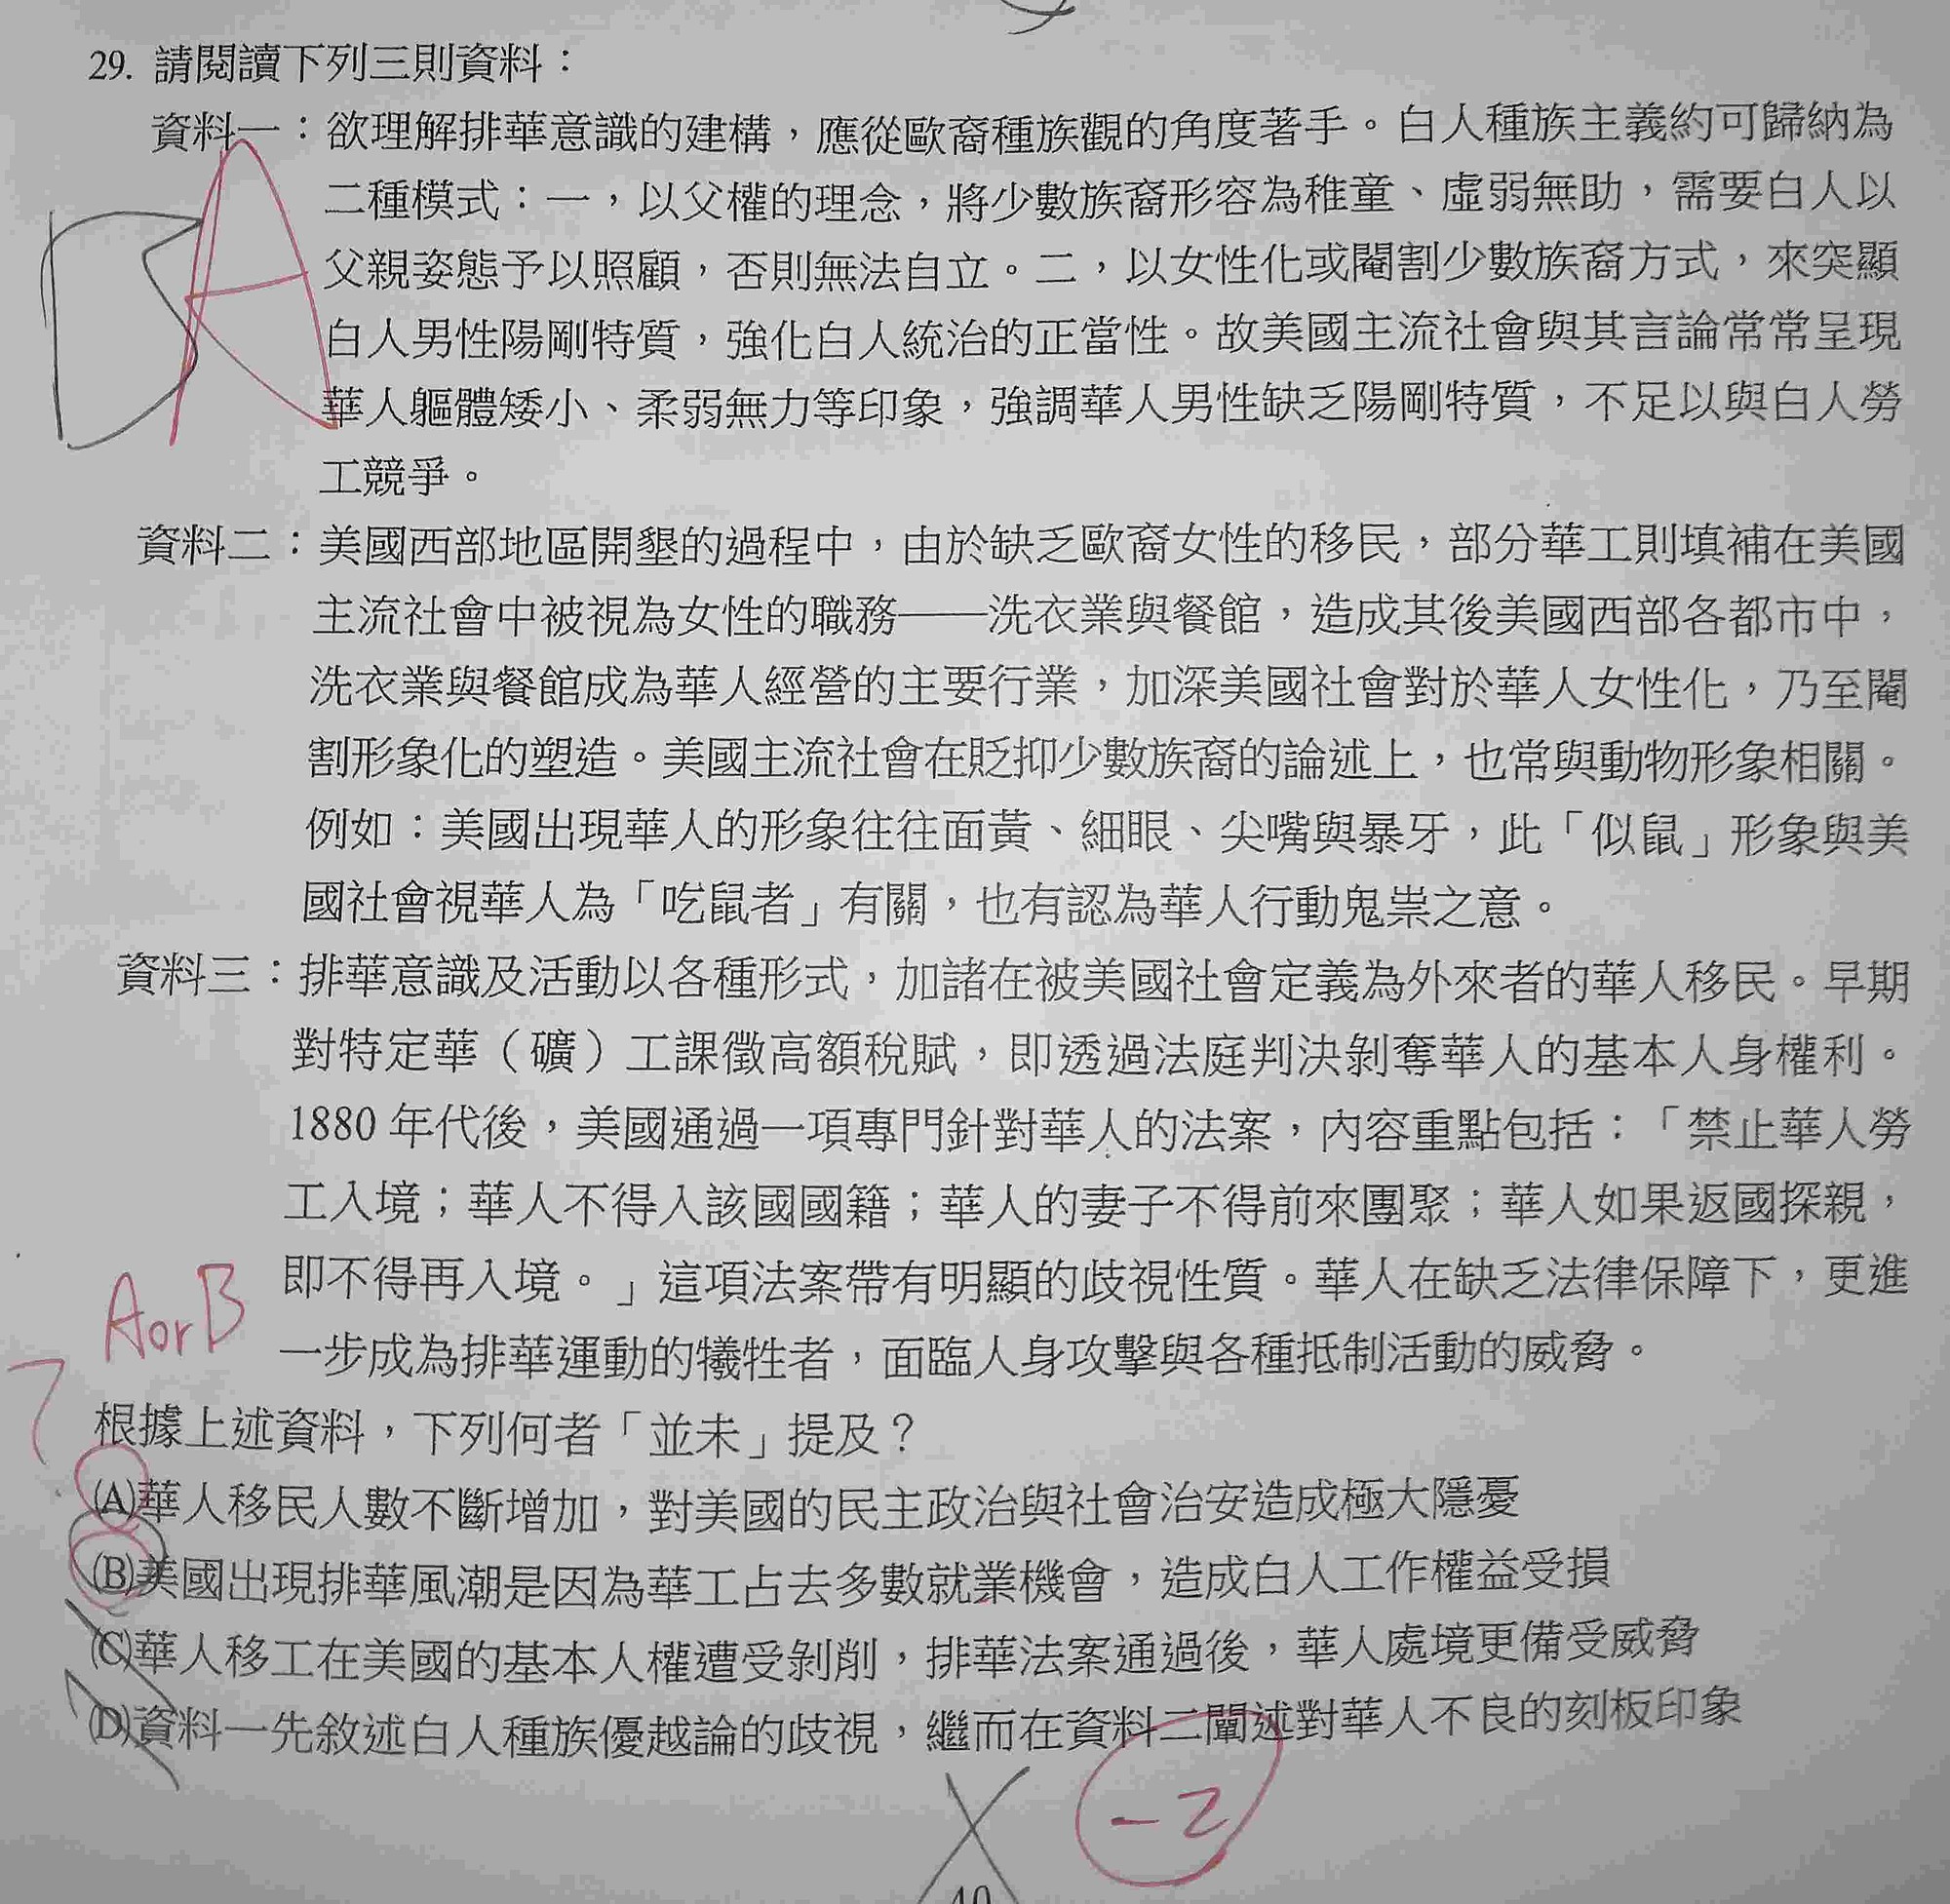 29. 請閱讀下列三則資料：
資料一：欲理解排華意識的建構，應從歐裔種族觀的角度著手。白人種族主義約可歸納為
二種模式：一，以父權的理念，將少數族裔形容為稚童、虛弱無助，需要白人以
父親姿態予以照顧，否則無法自立。二，以女性化或閹割少數族裔方式，來突顯
白人男性陽剛特質，強化白人統治的正當性。故美國主流社會與其言論常常呈現
華人軀體矮小、柔弱無力等印象，強調華人男性缺乏陽剛特質，不足以與白人勞
工競爭。
BA
資料二：美國西部地區開墾的過程中，由於缺乏歐裔女性的移民，部分華工則填補在美國
主流社會中被視為女性的職務——洗衣業與餐館，造成其後美國西部各都市中，
洗衣業與餐館成為華人經營的主要行業，加深美國社會對於華人女性化，乃至閹
割形象化的塑造。美國主流社會在貶抑少數族裔的論述上，也常與動物形象相關。
例如：美國出現華人的形象往往面黃、細眼、尖嘴與暴牙，此「似鼠」形象與美
國社會視華人為「吃鼠者」有關，也有認為華人行動鬼祟之意。
資料三：排華意識及活動以各種形式，加諸在被美國社會定義為外來者的華人移民。早期
對特定華（礦）工課徵高額稅賦，即透過法庭判決剝奪華人的基本人身權利。
1880 年代後，美國通過一項專門針對華人的法案，內容重點包括：「禁止華人勞
工入境；華人不得入該國國籍；華人的妻子不得前來團聚；華人如果返國探親，
即不得再入境。」這項法案帶有明顯的歧視性質。華人在缺乏法律保障下，更進
一步成為排華運動的犧牲者，面臨人身攻擊與各種抵制活動的威脅。
A or B
根據上述資料，下列何者「並未」提及？
(A)華人移民人數不斷增加，對美國的民主政治與社會治安造成極大隱憂
(B)美國出現排華風潮是因為華工占去多數就業機會，造成白人工作權益受損
(C)華人移工在美國的基本人權遭受剝削，排華法案通過後，華人處境更備受威脅
(D)資料一先敘述白人種族優越論的歧視，繼而在資料二闡述對華人不良的刻板印象
-2
10